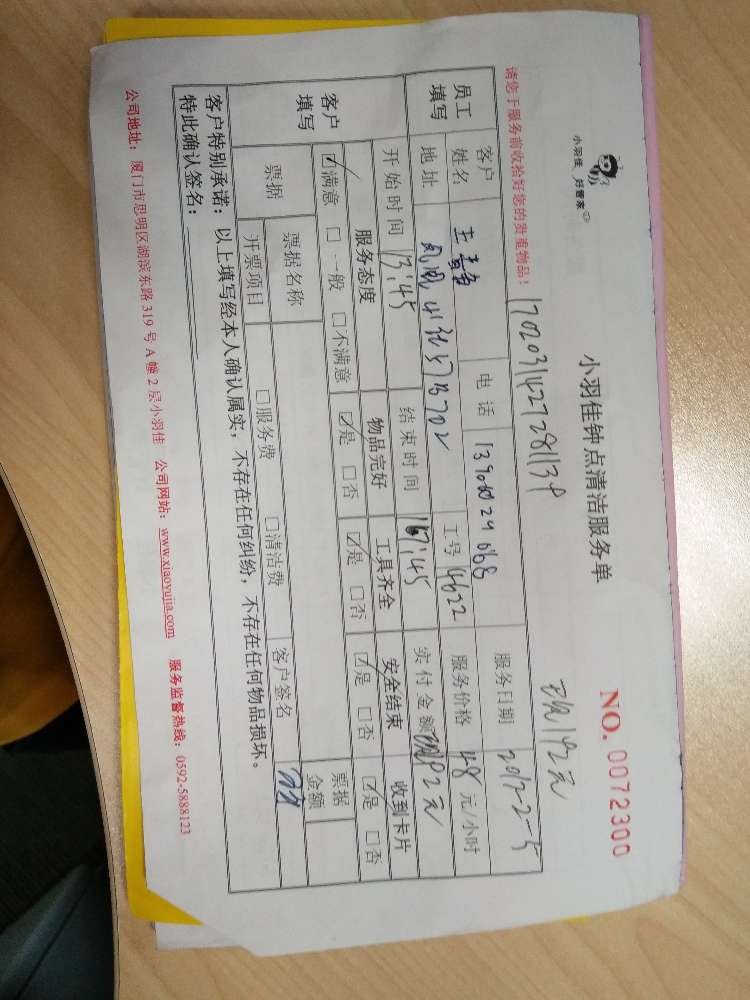 小羽佳 好管家
小羽佳钟点清洁服务单
NO. 0072300
请您于服务前收拾好您的贵重物品！
现192元
员工填写
客户姓名 王 电话 服务日期 2017-2-5
地址 凤凰 B702 工号 4622 服务价格 48 元/小时
开始时间 13:45 结束时间 :45 实付金额 现192元
客户填写
服务态度 物品完好 工具齐全 安全结束 收到卡片
☑满意 □一般 □不满意 ☑是 □否 ☑是 □否 ☑是 □否 ☑是 □否
票据 票据名称 票据金额
开票项目 □服务费 □清洁费 客户签名
客户特别承诺：以上填写经本人确认属实，不存在任何纠纷，不存在任何物品损坏。
特此确认签名：
公司地址：厦门市思明区湖滨东路 319 号 A 幢 2 层小羽佳 公司网站：www.xiaoyujia.com 服务监督热线：0592-5888123